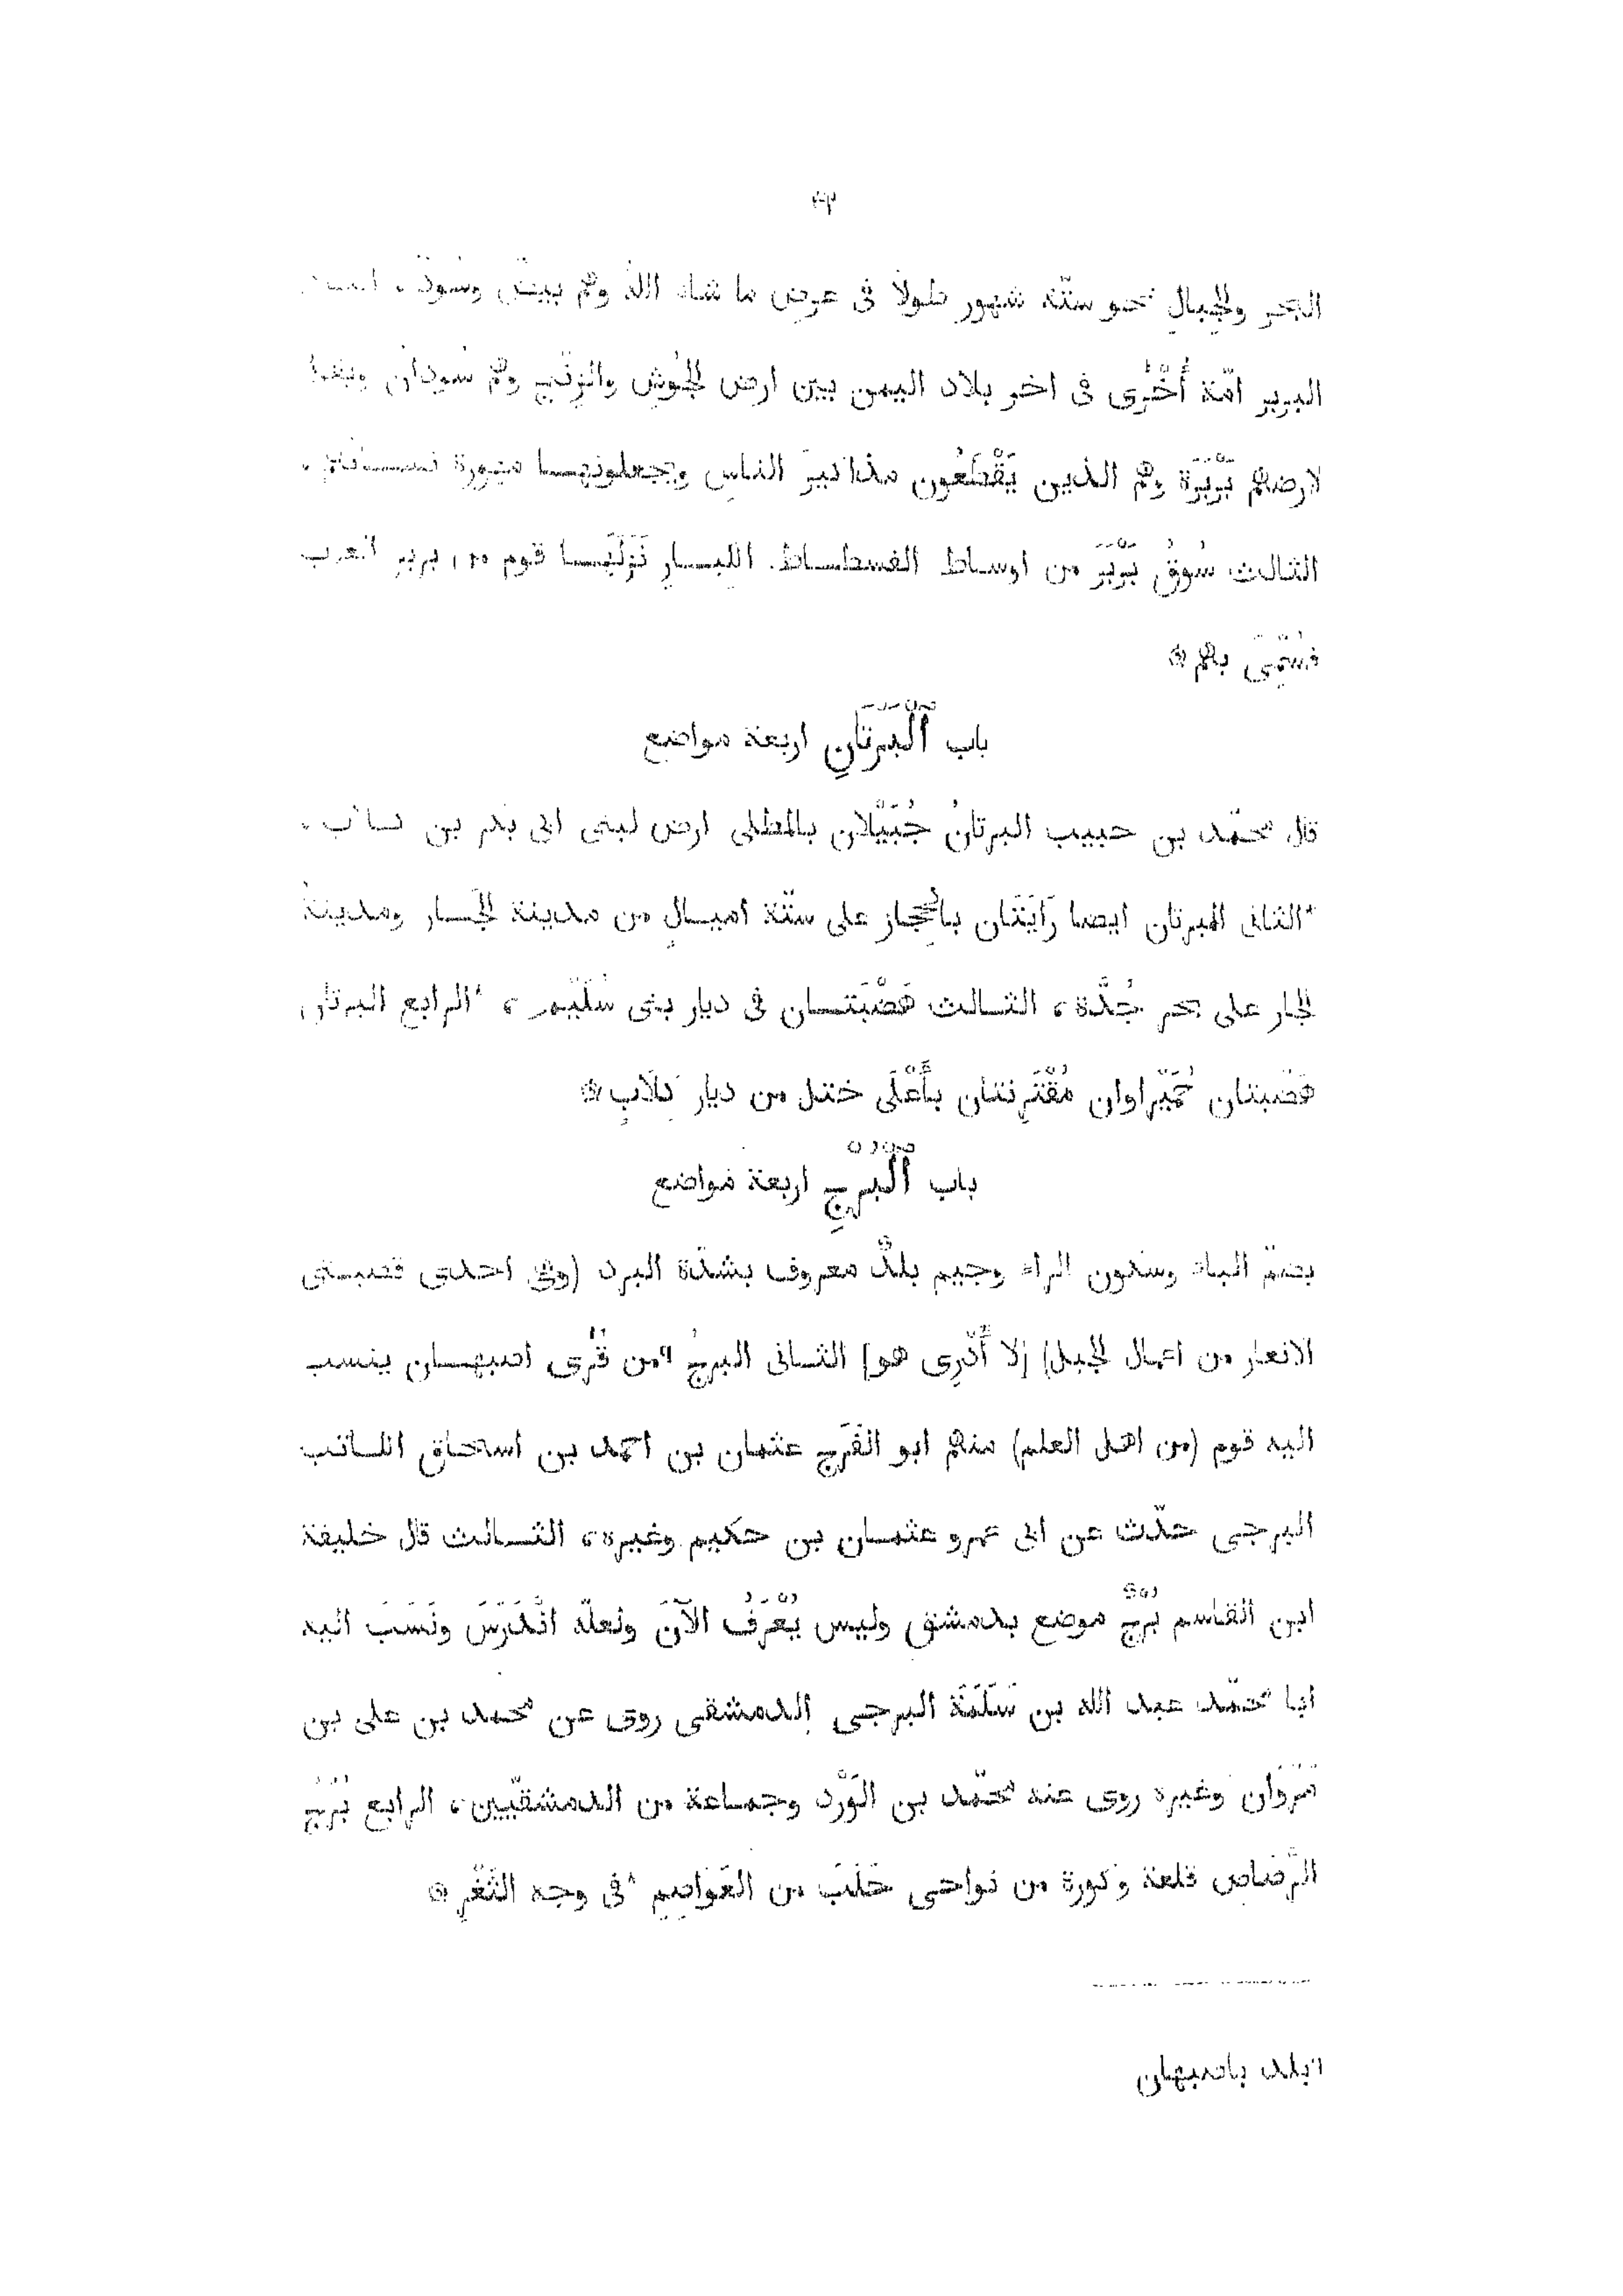 البحر والجبال نحو ستّة شهور طولا فى عرض ما شاء الله وهم بيض وسُودٌ ،
البربر امّة أُخْرى فى اخر بلاد اليمن بين ارض الحبوش والزنج وهم سُودان
لارضهم بَرْبَرَة وهم الذين يَقْطَعُون مذاكيرَ الناس ويجعلونها مهورة نسائهم ،
الثالث سُوقُ بَرْبَر من اوساط الفسطاط نَزَلَها قوم من بربر العرب
فسُمّىَ بهم ۞
باب ٱلْبَرَتَانِ اربعة مواضع
قال محمّد بن حبيب البرتانُ جُبَيْلان بالمطلى ارض لبنى ابى بكر بن كلاب ،
الثانى البرتان ايضا رَابَتَان بالحجاز على ستّة اميال من مدينة الجار ومدينة
الجار على بحر جُدَّة ، الثالث هَضْبَتان فى ديار بنى سُلَيْم ، الرابع البرتان
هَضْبتان حُمَيْراوان مُقْتَرِنتان بأَعْلَى خنثل من ديار كِلَابٍ ۞
باب ٱلْبُرْجِ اربعة مواضع
بضمّ الباء وسكون الراء وجيم بلدٌ معروف بشدّة البرد (وهى احدى قصبتى
الايغار من اعمال الجبل) [لا أَدْرِى هو] الثانى البرجُ من قُرَى اصبهان ينسب
اليه قوم (من اهل العلم) منهم ابو الفَرَج عثمان بن احمد بن اسحاق الكاتب
البرجى حدّث عن ابى عمرو عثمان بن حكيم وغيره ، الثالث قال خليفة
ابن القاسم بُرْجٌ موضع بدمشق وليس يُعْرَفُ الآنَ ولعلّه انْدَرَسَ ونَسَبَ اليه
ابا محمّد عبد الله بن سَلَمَة البرجى الدمشقى روى عن محمد بن على بن
مَرْوَان وغيره روى عنه محمّد بن الوَرْد وجماعة من الدمشقيّين ، الرابع بُرْجُ
الرَّصاص قلعة وكورة من نواحى حَلَبَ من العَوَاصِم فى وجه الثَّغْر ۞
بلد باصبهان